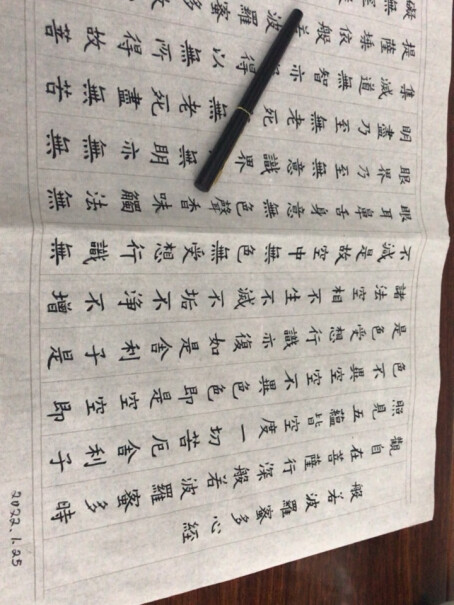 般若波羅蜜多心經
觀自在菩薩行深般若波羅蜜多時
照見五蘊皆空度一切苦厄舍利子
色不異空空不異色色即是空空即
是色受想行識亦復如是舍利子是
諸法空相不生不滅不垢不淨不增
不減是故空中無色無受想行識無
眼耳鼻舌身意無色聲香味觸法無
眼界乃至無意識界無明亦無無
明盡乃至無老死無老死盡無苦
集滅道無智亦得以無所得故菩
提薩埵依般若波羅蜜
礙
2022.1.25